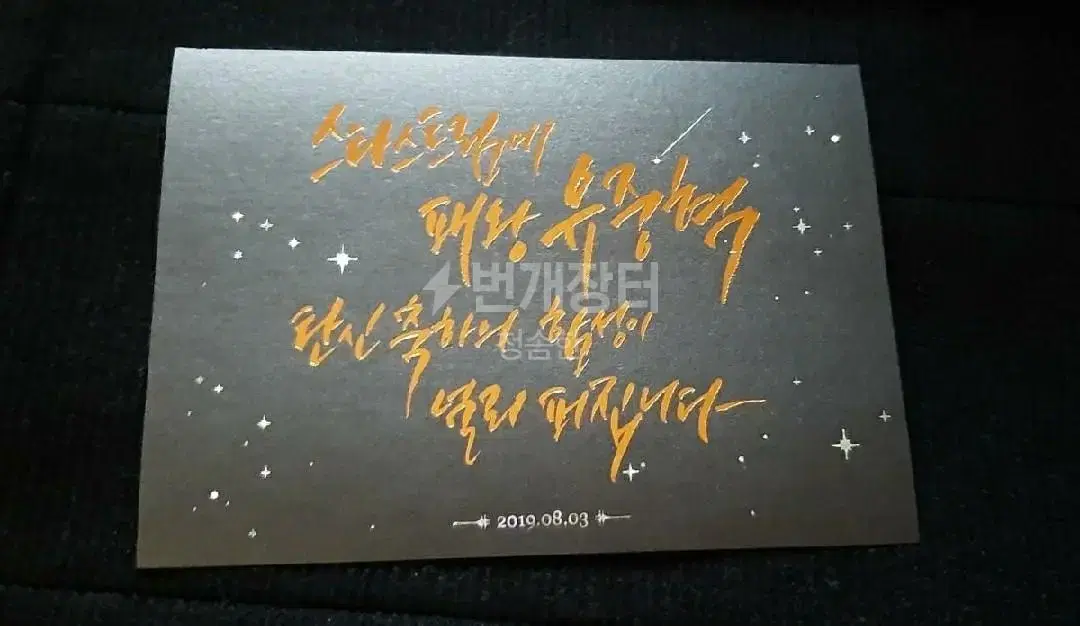 스타스트림에
패왕 유중혁
번개장터
탄신 축하의 함성이
널리 퍼집니다
2019.08.03